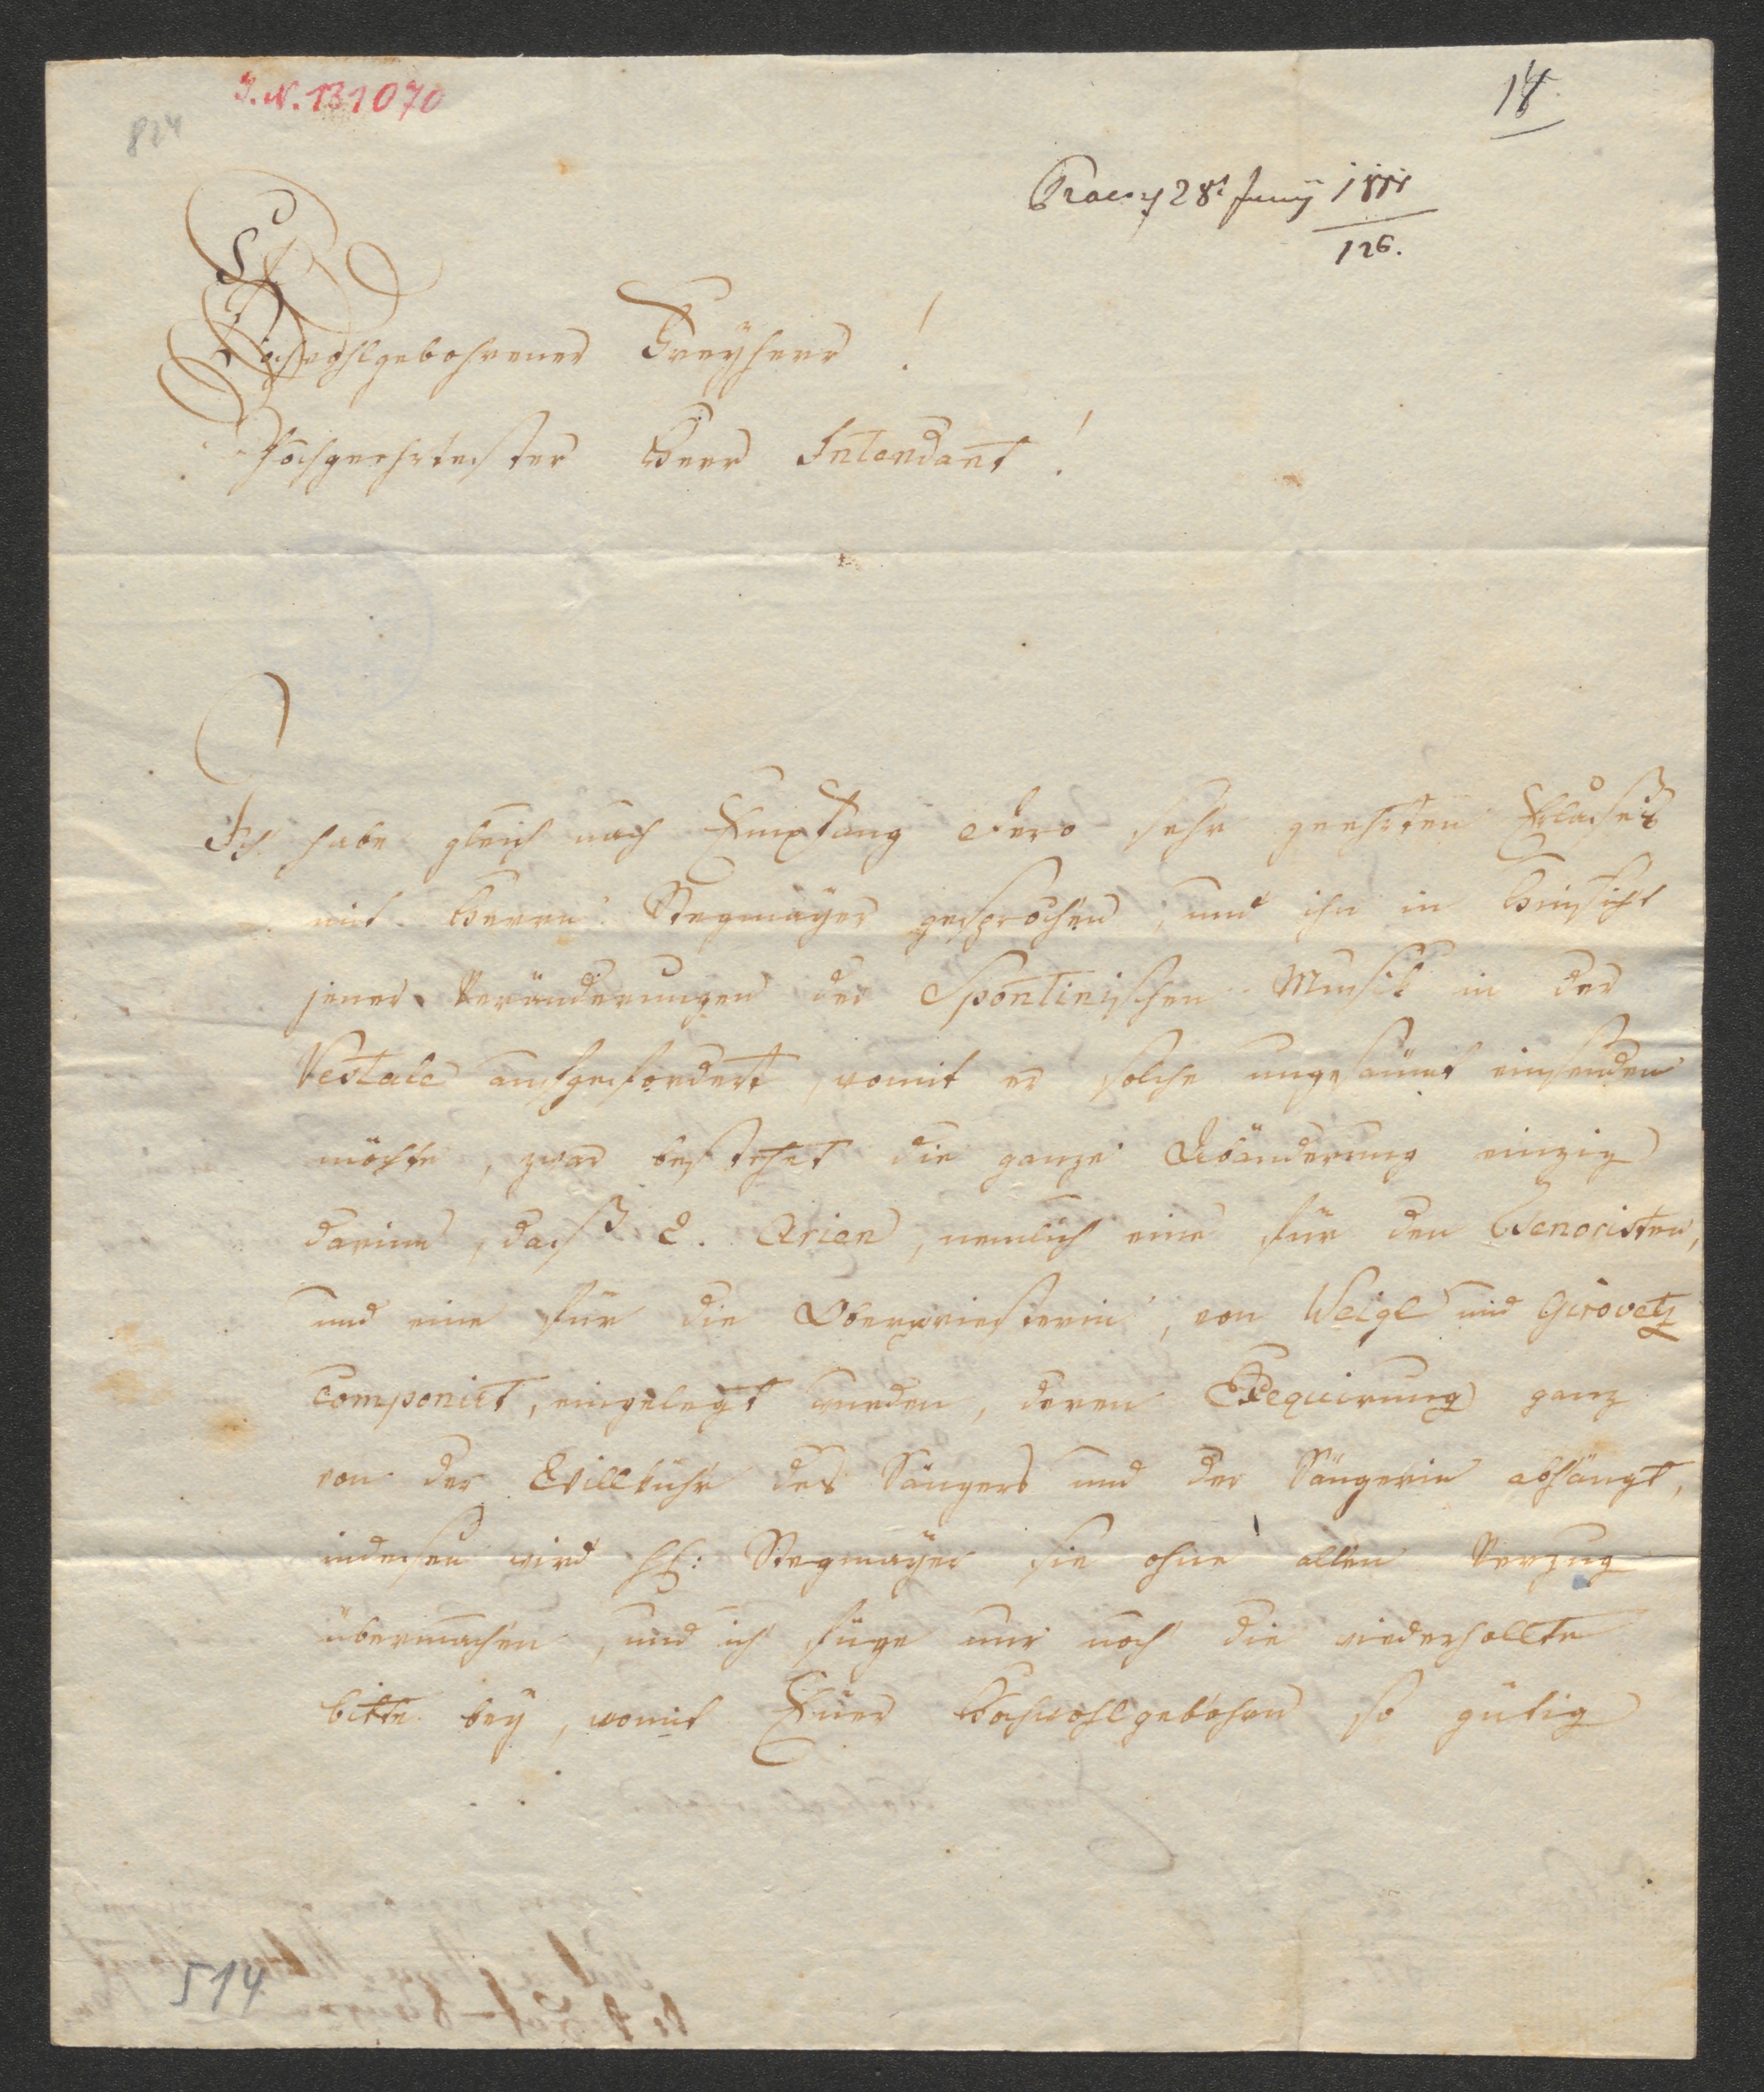 I.N. 131070
824
14
Praes. 28t Juny 1811
126.
Hochwohlgebohrener Freÿherr!
Hochgeehrtester Herr Intendant!
Ich habe gleich nach Empfang dero sehr geehrten Erlaßes
mit Herrn Stegmaÿer gesprochen, und ihn in Hinsicht
jener Veränderungen der Spontinischen Musik in der
Vestale aufgefordert, womit er solche ungesäumt einsenden
möchte, zwar bestehet die ganze Abänderung einzig
darinn, daß 2. Arien, nemlich eine für den Tenoristen,
und eine für die Oberpriesterin, von Weigl und Girovetz
componirt, eingelegt wurden, deren Exequirung ganz
von der Willkühr des Sängers und der Sängerin abhängt,
indessen wird H: Stegmaÿer sie ohne allen Verzug
übermachen, und ich füge nur noch die wiederhollte
bitte beÿ, womit Euer Hochwohlgebohrn so gütig
514